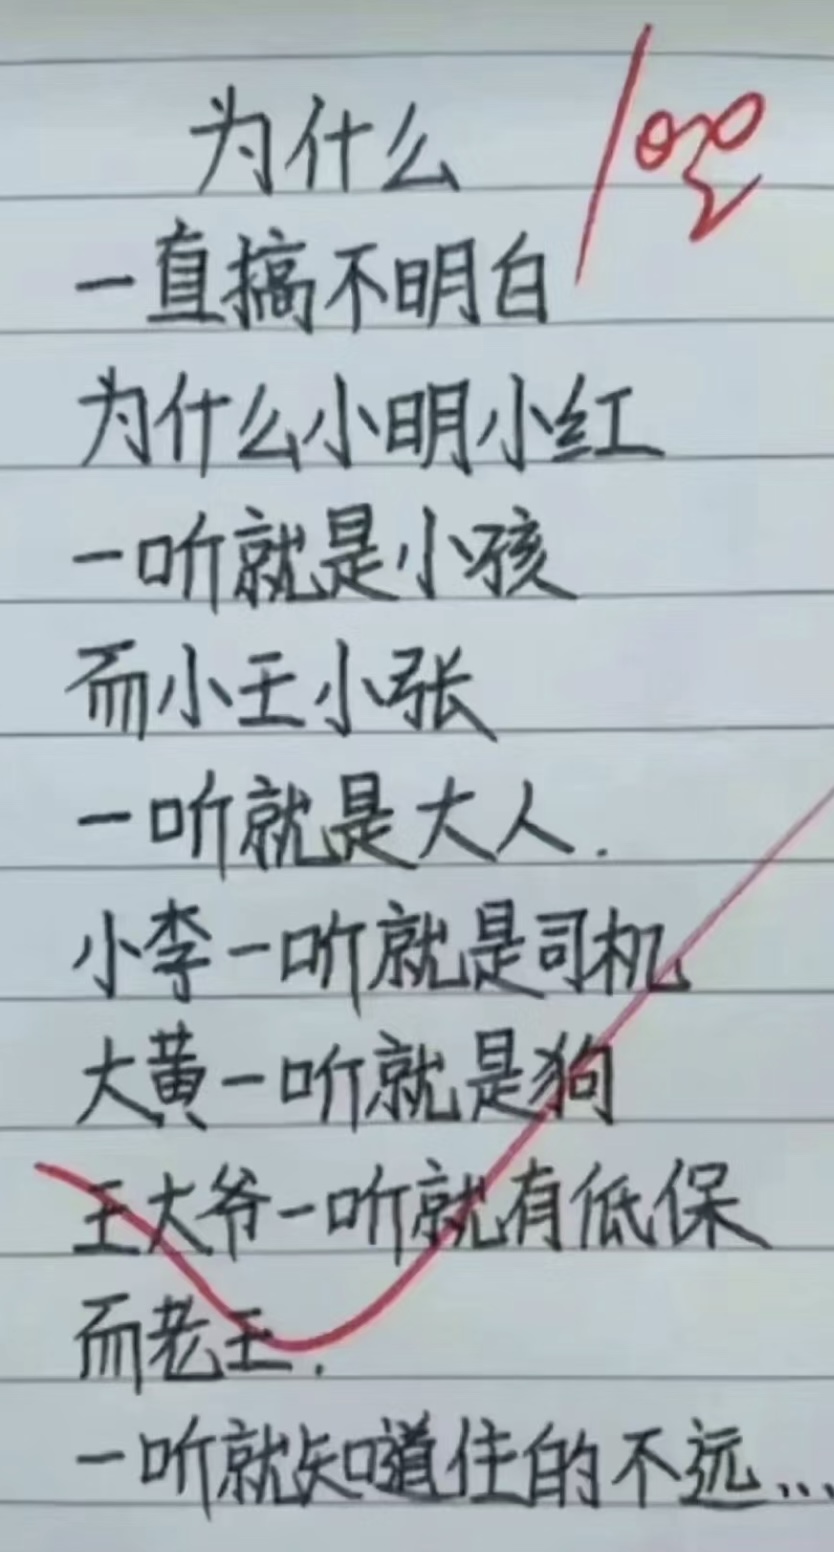 为什么
一直搞不明白
为什么小明小红
一听就是小孩
而小王小张
一听就是大人.
小李一听就是司机
大黄一听就是狗
王大爷一听就有低保
而老王.
一听就知道住的不远...